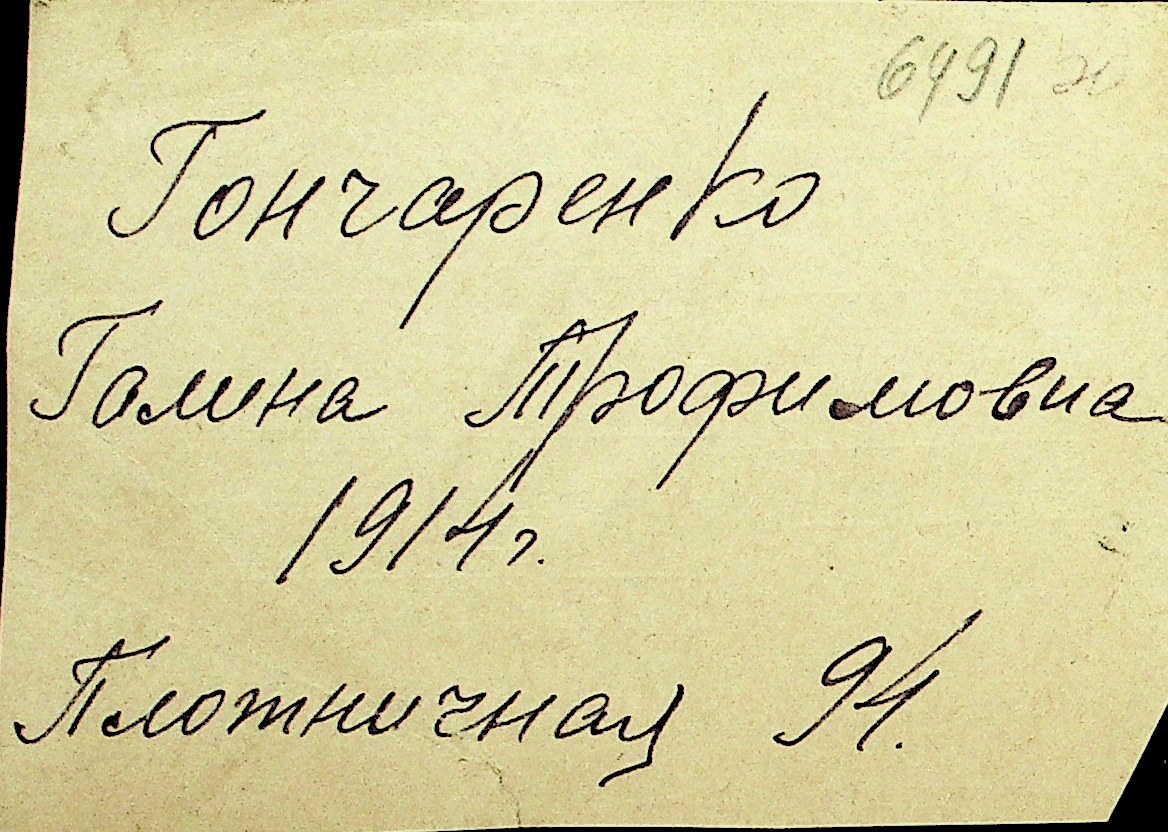 6491
Гончаренко
Галина Трофимовна
1914 г.
Плотничная 94.